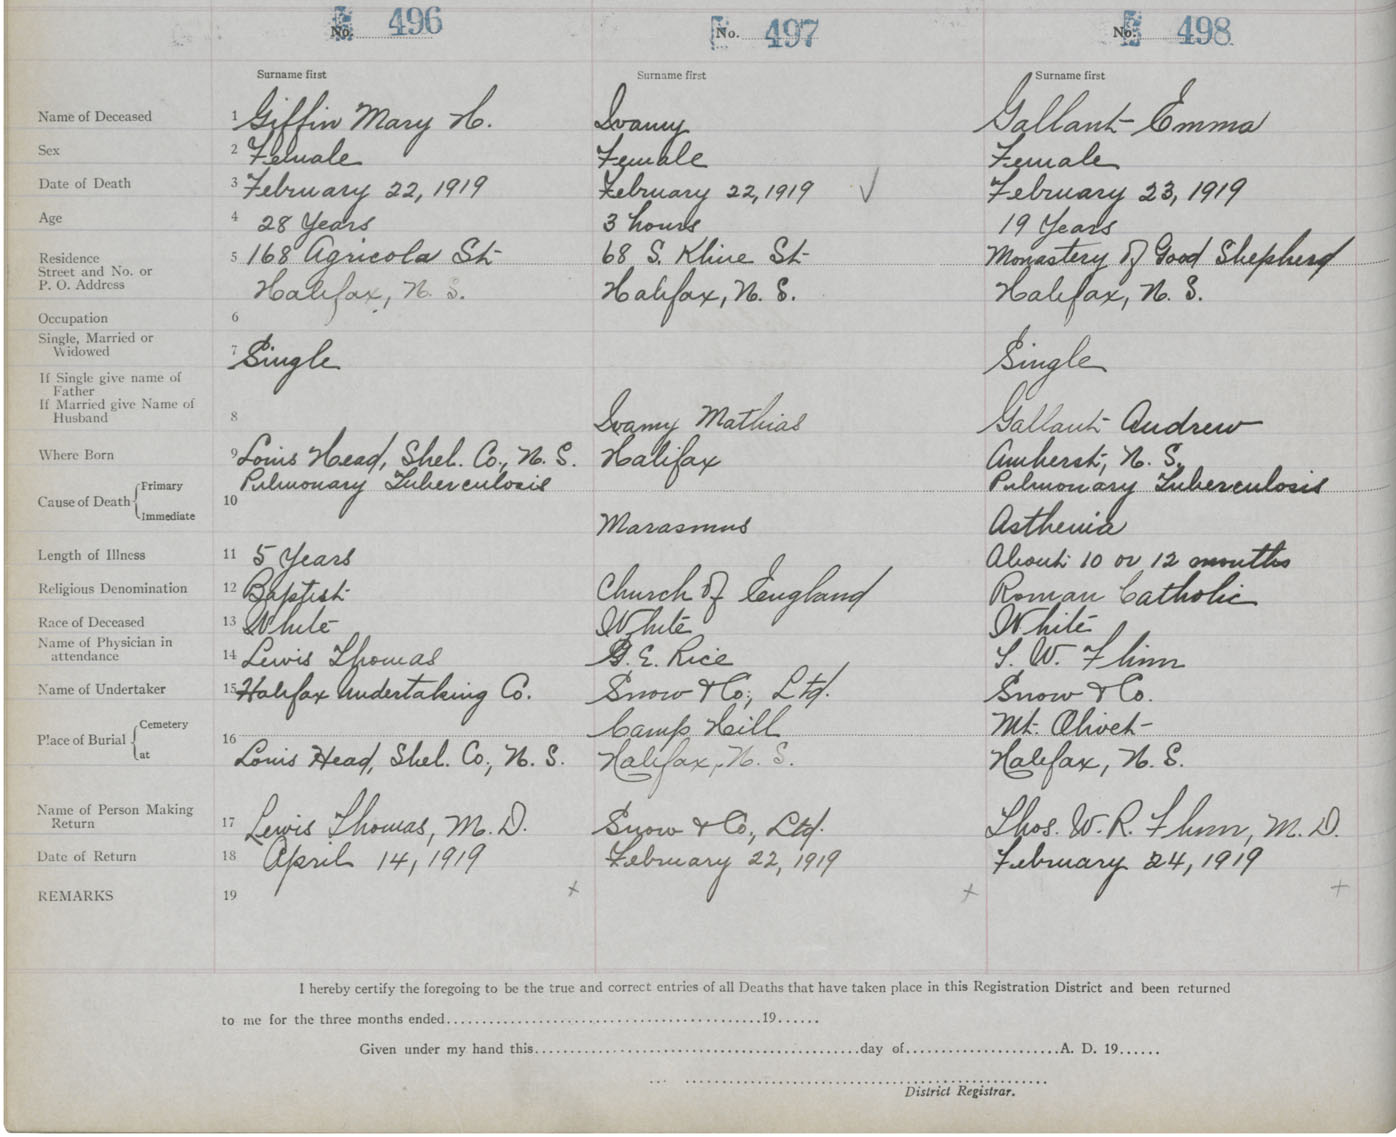 No. 496 No. 497 No. 498
Surname first Surname first Surname first
Name of Deceased 1 Giffin Mary H. Ivamy Gallant Emma
Sex 2 Female Female Female
Date of Death 3 February 22, 1919 February 22, 1919 ✓ February 23, 1919
Age 4 28 Years 3 hours 19 Years
Residence 5 168 Agricola St 68 S. Kline St Monastery of Good Shepherd
Street and No. or
P. O. Address Halifax, N. S. Halifax, N. S. Halifax, N. S.
Occupation 6
Single, Married or
Widowed 7 Single Single
If Single give name of
Father
If Married give Name of
Husband 8 Ivamy Mathias Gallant Andrew
Where Born 9 Louis Head, Shel. Co., N. S. Halifax Amherst, N. S.
Cause of Death Primary Pulmonary Tuberculosis Pulmonary Tuberculosis
10
Immediate Marasmus Asthenia
Length of Illness 11 5 Years About 10 or 12 months
Religious Denomination 12 Baptist Church of England Roman Catholic
Race of Deceased 13 White White White
Name of Physician in
attendance 14 Lewis Thomas G. E. Rice T. W. Flinn
Name of Undertaker 15 Halifax Undertaking Co. Snow & Co., Ltd. Snow & Co.
Place of Burial Cemetery Camp Hill Mt. Olivet
16
at Louis Head, Shel. Co., N. S. Halifax, N. S. Halifax, N. S.
Name of Person Making
Return 17 Lewis Thomas, M. D. Snow & Co., Ltd. Thos. W. R. Flinn, M. D.
Date of Return 18 April 14, 1919 February 22, 1919 February 24, 1919
REMARKS 19 + + +
I hereby certify the foregoing to be the true and correct entries of all Deaths that have taken place in this Registration District and been returned
to me for the three months ended 19
Given under my hand this day of A. D. 19
District Registrar.